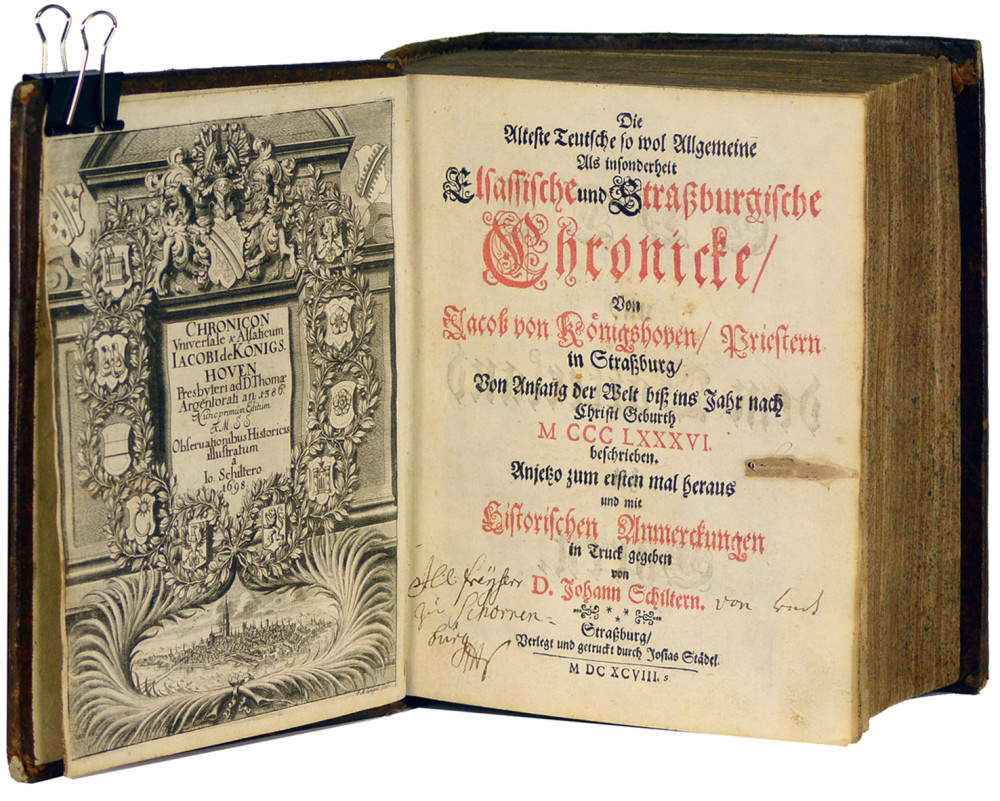 CHRONICON
Vniversale & Alsaticum
IACOBI de KÖNIGS.
HOVEN
Presbyteri ad D. Thomæ
Argentorati an. 1386.
Nunc primum Editum
&
Observationibus Historicis
illustratum
a
Io. Schiltero
1698.
Die
Alteste Teutsche so wol Allgemeine
Als insonderheit
Elsassische und Straßburgische
Chronicke/
Von
Jacob von Königshoven/ Priestern
in Straßburg/
Von Anfang der Welt biß ins Jahr nach
Christi Geburth
M CCC LXXXVI.
beschrieben.
Anjetzo zum ersten mal heraus
und mit
Historischen Anmerckungen
in Truck gegeben
von
D. Johann Schiltern.
Straßburg/
Verlegt und getruckt durch Josias Städel.
M DC XCVIII.
von
zu Schorren-
burg